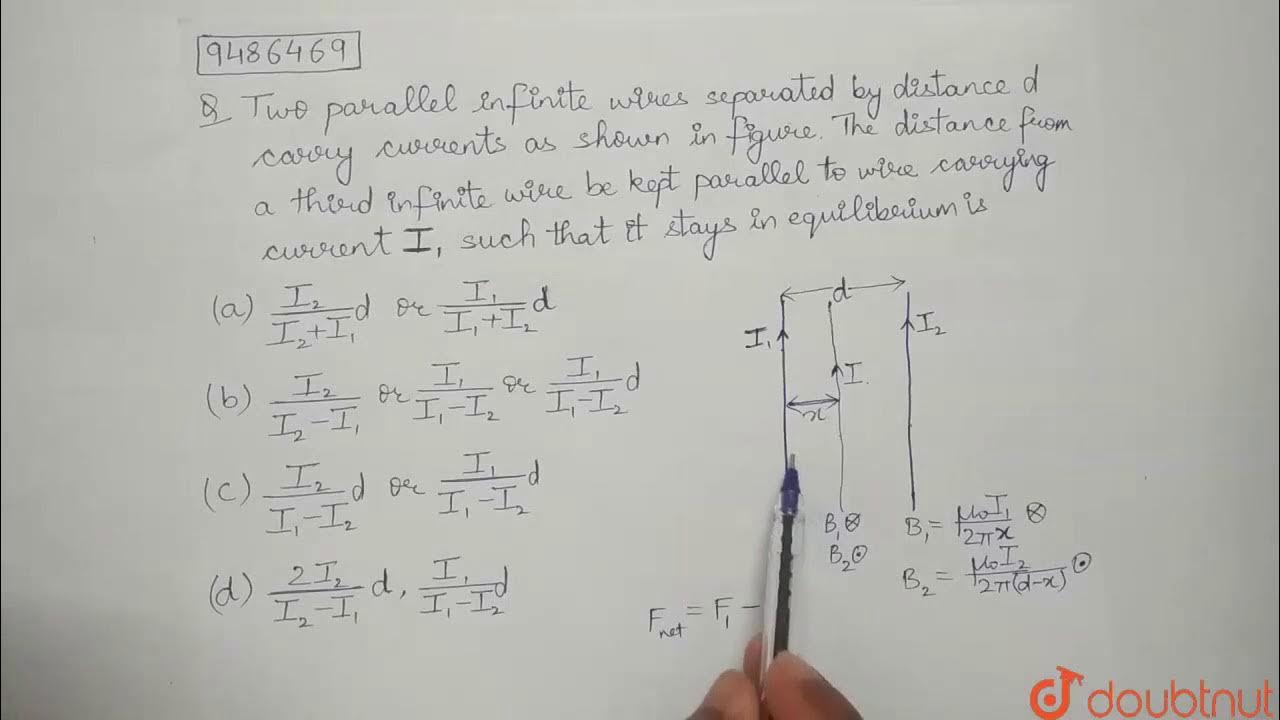 9486469
Q Two parallel infinite wires separated by distance d
carry currents as shown in figure. The distance from
a third infinite wire be kept parallel to wire carrying
current I, such that it stays in equilibrium is
(a) I₂/(I₂+I₁) d or I₁/(I₁+I₂) d
(b) I₂/(I₂-I₁) or I₁/(I₁-I₂) or I₁/(I₁-I₂) d
(c) I₂/(I₁-I₂) d or I₁/(I₁-I₂) d
(d) 2I₂/(I₂-I₁) d, I₁/(I₁-I₂) d
d
I₁
I₂
I.
x
B₁⊗
B₂⊙
B₁ = μ₀I₁/2πx ⊗
B₂ = μ₀I₂/2π(d-x) ⊙
Fnet = F₁ -
doubtnut